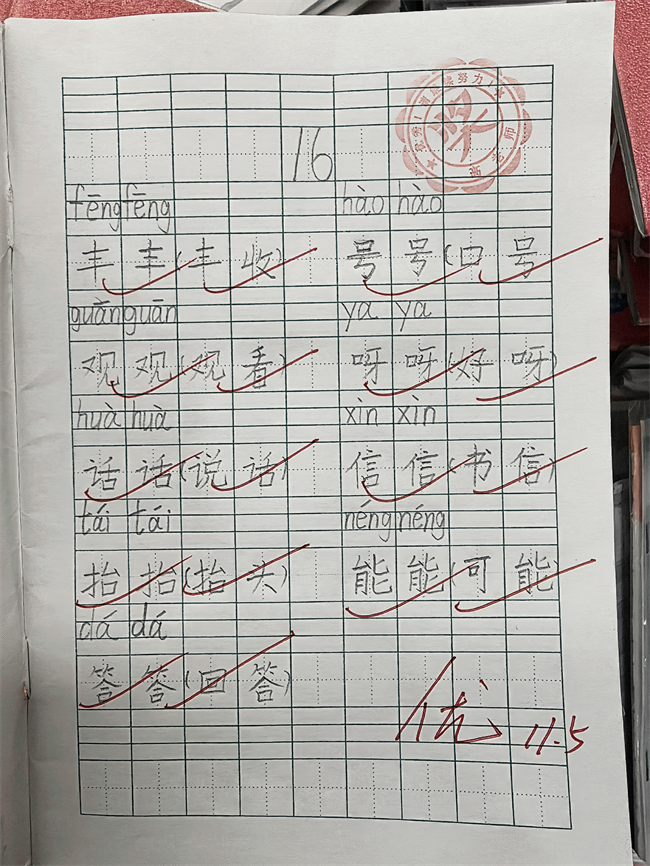 16
奖
fēng fēng hào hào
丰 丰(丰 收) 号 号(口 号)
guān guān ya ya
观 观(观 看) 呀 呀(好 呀)
huà huà xìn xìn
话 话(说 话) 信 信(书 信)
tái tái néng néng
抬 抬(抬 头) 能 能(可 能)
dá dá
答 答(回 答)
优 11.5